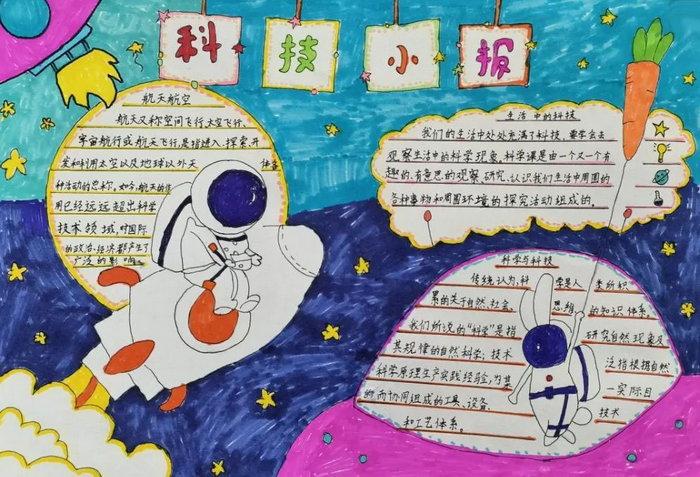 科技小报
航天航空
航天又称空间飞行,太空飞行、
宇宙航行或航天飞行,是指进入、探索、开
发和利用太空以及地球以外天体各
种活动的总称,如今,航天的作
用已经远远超出科学
技术领域,对国际
的政治、经济都产生了
广泛的影响。
生活中的科技
我们的生活中处处充满了科技,要学会去
观察生活中的科学现象,科学课是由一个又一个有
趣的、有意思的观察、研究、认识我们生活中周围的
各种事物和周围环境的探究活动组成的。
科学与科技
传统认为,科学是人类所积
累的关于自然、社会、思维的知识体系
我们所说的“科学”是指研究自然现象及
其规律的自然科学;技术泛指根据自然
科学原理生产实践经验,为某一实际目
的而协同组成的工具、设备、技术
和工艺体系。